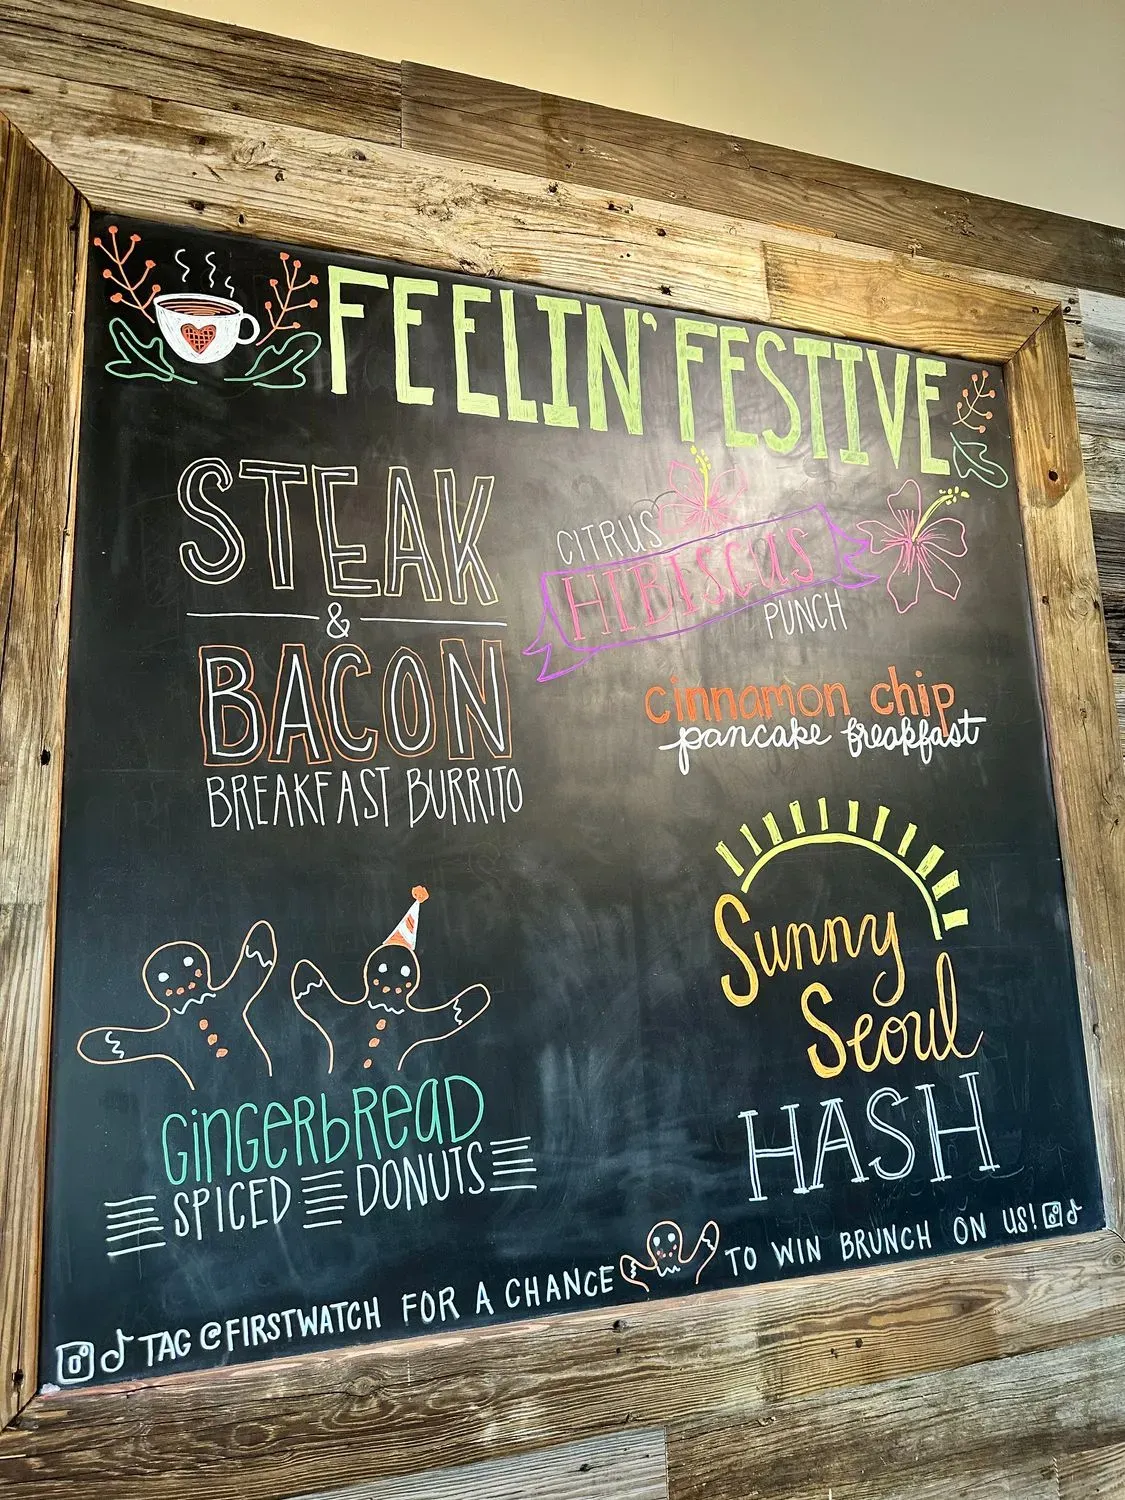 FEELIN' FESTIVE
STEAK
&
BACON
BREAKFAST BURRITO
CITRUS
HIBISCUS
PUNCH
cinnamon chip
pancake breakfast
GINGERBREAD
SPICED DONUTS
Sunny
Seoul
HASH
TAG @FIRSTWATCH FOR A CHANCE TO WIN BRUNCH ON US!